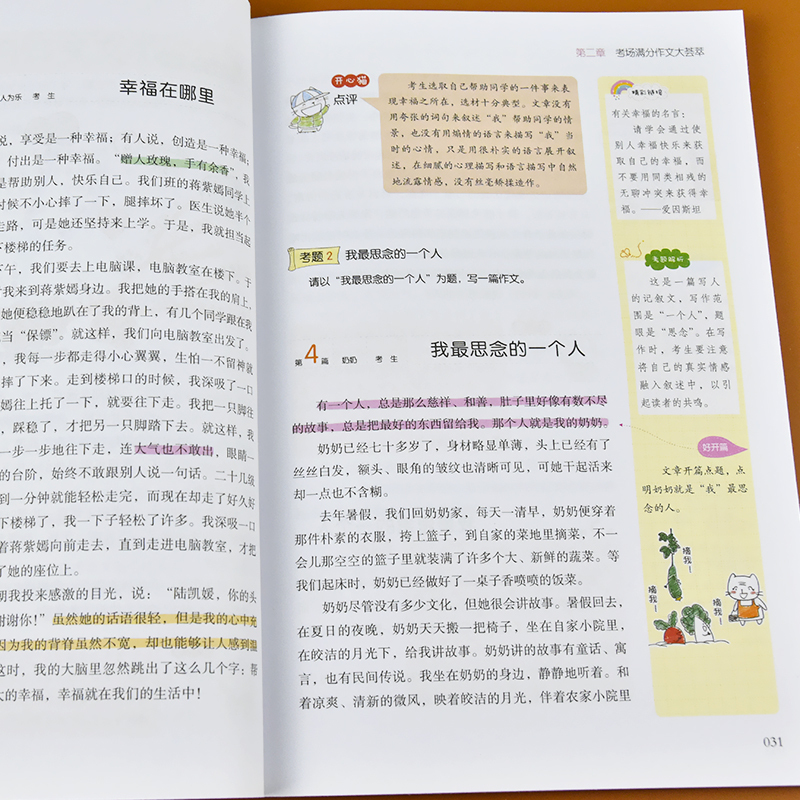 人为乐 考生
幸福在哪里
说，享受是一种幸福；有人说，创造是一种幸福；
付出是一种幸福。“赠人玫瑰，手有余香”，我
是帮助别人，快乐自己。我们班的蒋紫嫣同学上
时候不小心摔了一下，腿摔坏了。医生说她半个
走路，可是她还坚持来上学。于是，我就担当起
下楼梯的任务。
下午，我们要去上电脑课，电脑教室在楼下。于
我来到蒋紫嫣身边。我把她的手搭在我的肩上，
她便稳稳地趴在了我的背上，有几个同学跟在我
当“保镖”。就这样，我们向电脑教室出发了。
，我每一步都走得小心翼翼，生怕一不留神就
摔了下来。走到楼梯口的时候，我深吸了一口
嫣往上托了一下，就要往下走。我把一只脚往
，踩稳了，才把另一只脚踏下去。就这样，我
一步一步地往下走，连大气也不敢出，眼睛一
的台阶，始终不敢跟别人说一句话。二十几级
到一分钟就能轻松走完，而现在却走了好久好
下楼梯了，我一下子轻松了许多。我深吸一口
着蒋紫嫣向前走去，直到走进电脑教室，才把
了她的座位上。
朝我投来感激的目光，说：“陆凯媛，你的头
谢谢你！”虽然她的话语很轻，但是我的心中充
因为我的背脊虽然不宽，却也能够让人感到温
这时，我的大脑里忽然跳出了这么几个字：帮
大的幸福，幸福就在我们的生活中！
第二章 考场满分作文大荟萃
开心猫
点评
考生选取自己帮助同学的一件事来表
现幸福之所在，选材十分典型。文章没有
用夸张的词句来叙述“我”帮助同学的情
景，也没有用煽情的语言来描写“我”当
时的心情，只是用很朴实的语言展开叙
述，在细腻的心理描写和语言描写中自然
地流露情感，没有丝毫矫揉造作。
考题2 我最思念的一个人
请以“我最思念的一个人”为题，写一篇作文。
第4篇 奶奶 考生 我最思念的一个人
有一个人，总是那么慈祥、和善，肚子里好像有数不尽
的故事，总是把最好的东西留给我。那个人就是我的奶奶。
奶奶已经七十多岁了，身材略显单薄，头上已经有了
丝丝白发，额头、眼角的皱纹也清晰可见，可她干起活来
却一点也不含糊。
去年暑假，我们回奶奶家，每天一清早，奶奶便穿着
那件朴素的衣服，挎上篮子，到自家的菜地里摘菜，不一
会儿那空空的篮子里就装满了许多个大、新鲜的蔬菜。等
我们起床时，奶奶已经做好了一桌子香喷喷的饭菜。
奶奶尽管没有多少文化，但她很会讲故事。暑假回去，
在夏日的夜晚，奶奶天天搬一把椅子，坐在自家小院里，
在皎洁的月光下，给我讲故事。奶奶讲的故事有童话、寓
言，也有民间传说。我坐在奶奶的身边，静静地听着。和
着凉爽、清新的微风，映着皎洁的月光，伴着农家小院里
精彩链接
有关幸福的名言：
请学会通过使
别人幸福快乐来获
取自己的幸福，而
不要用同类相残的
无聊冲突来获得幸
福。——爱因斯坦
考题解析
这是一篇写人
的记叙文，写作范
围是“一个人”，题
眼是“思念”。在写
作时，考生要注意
将自己的真实情感
融入叙述中，以引
起读者的共鸣。
好开篇
文章开篇点题，点
明奶奶就是“我”最思
念的人。
摘我！
摘我！
摘我！
031